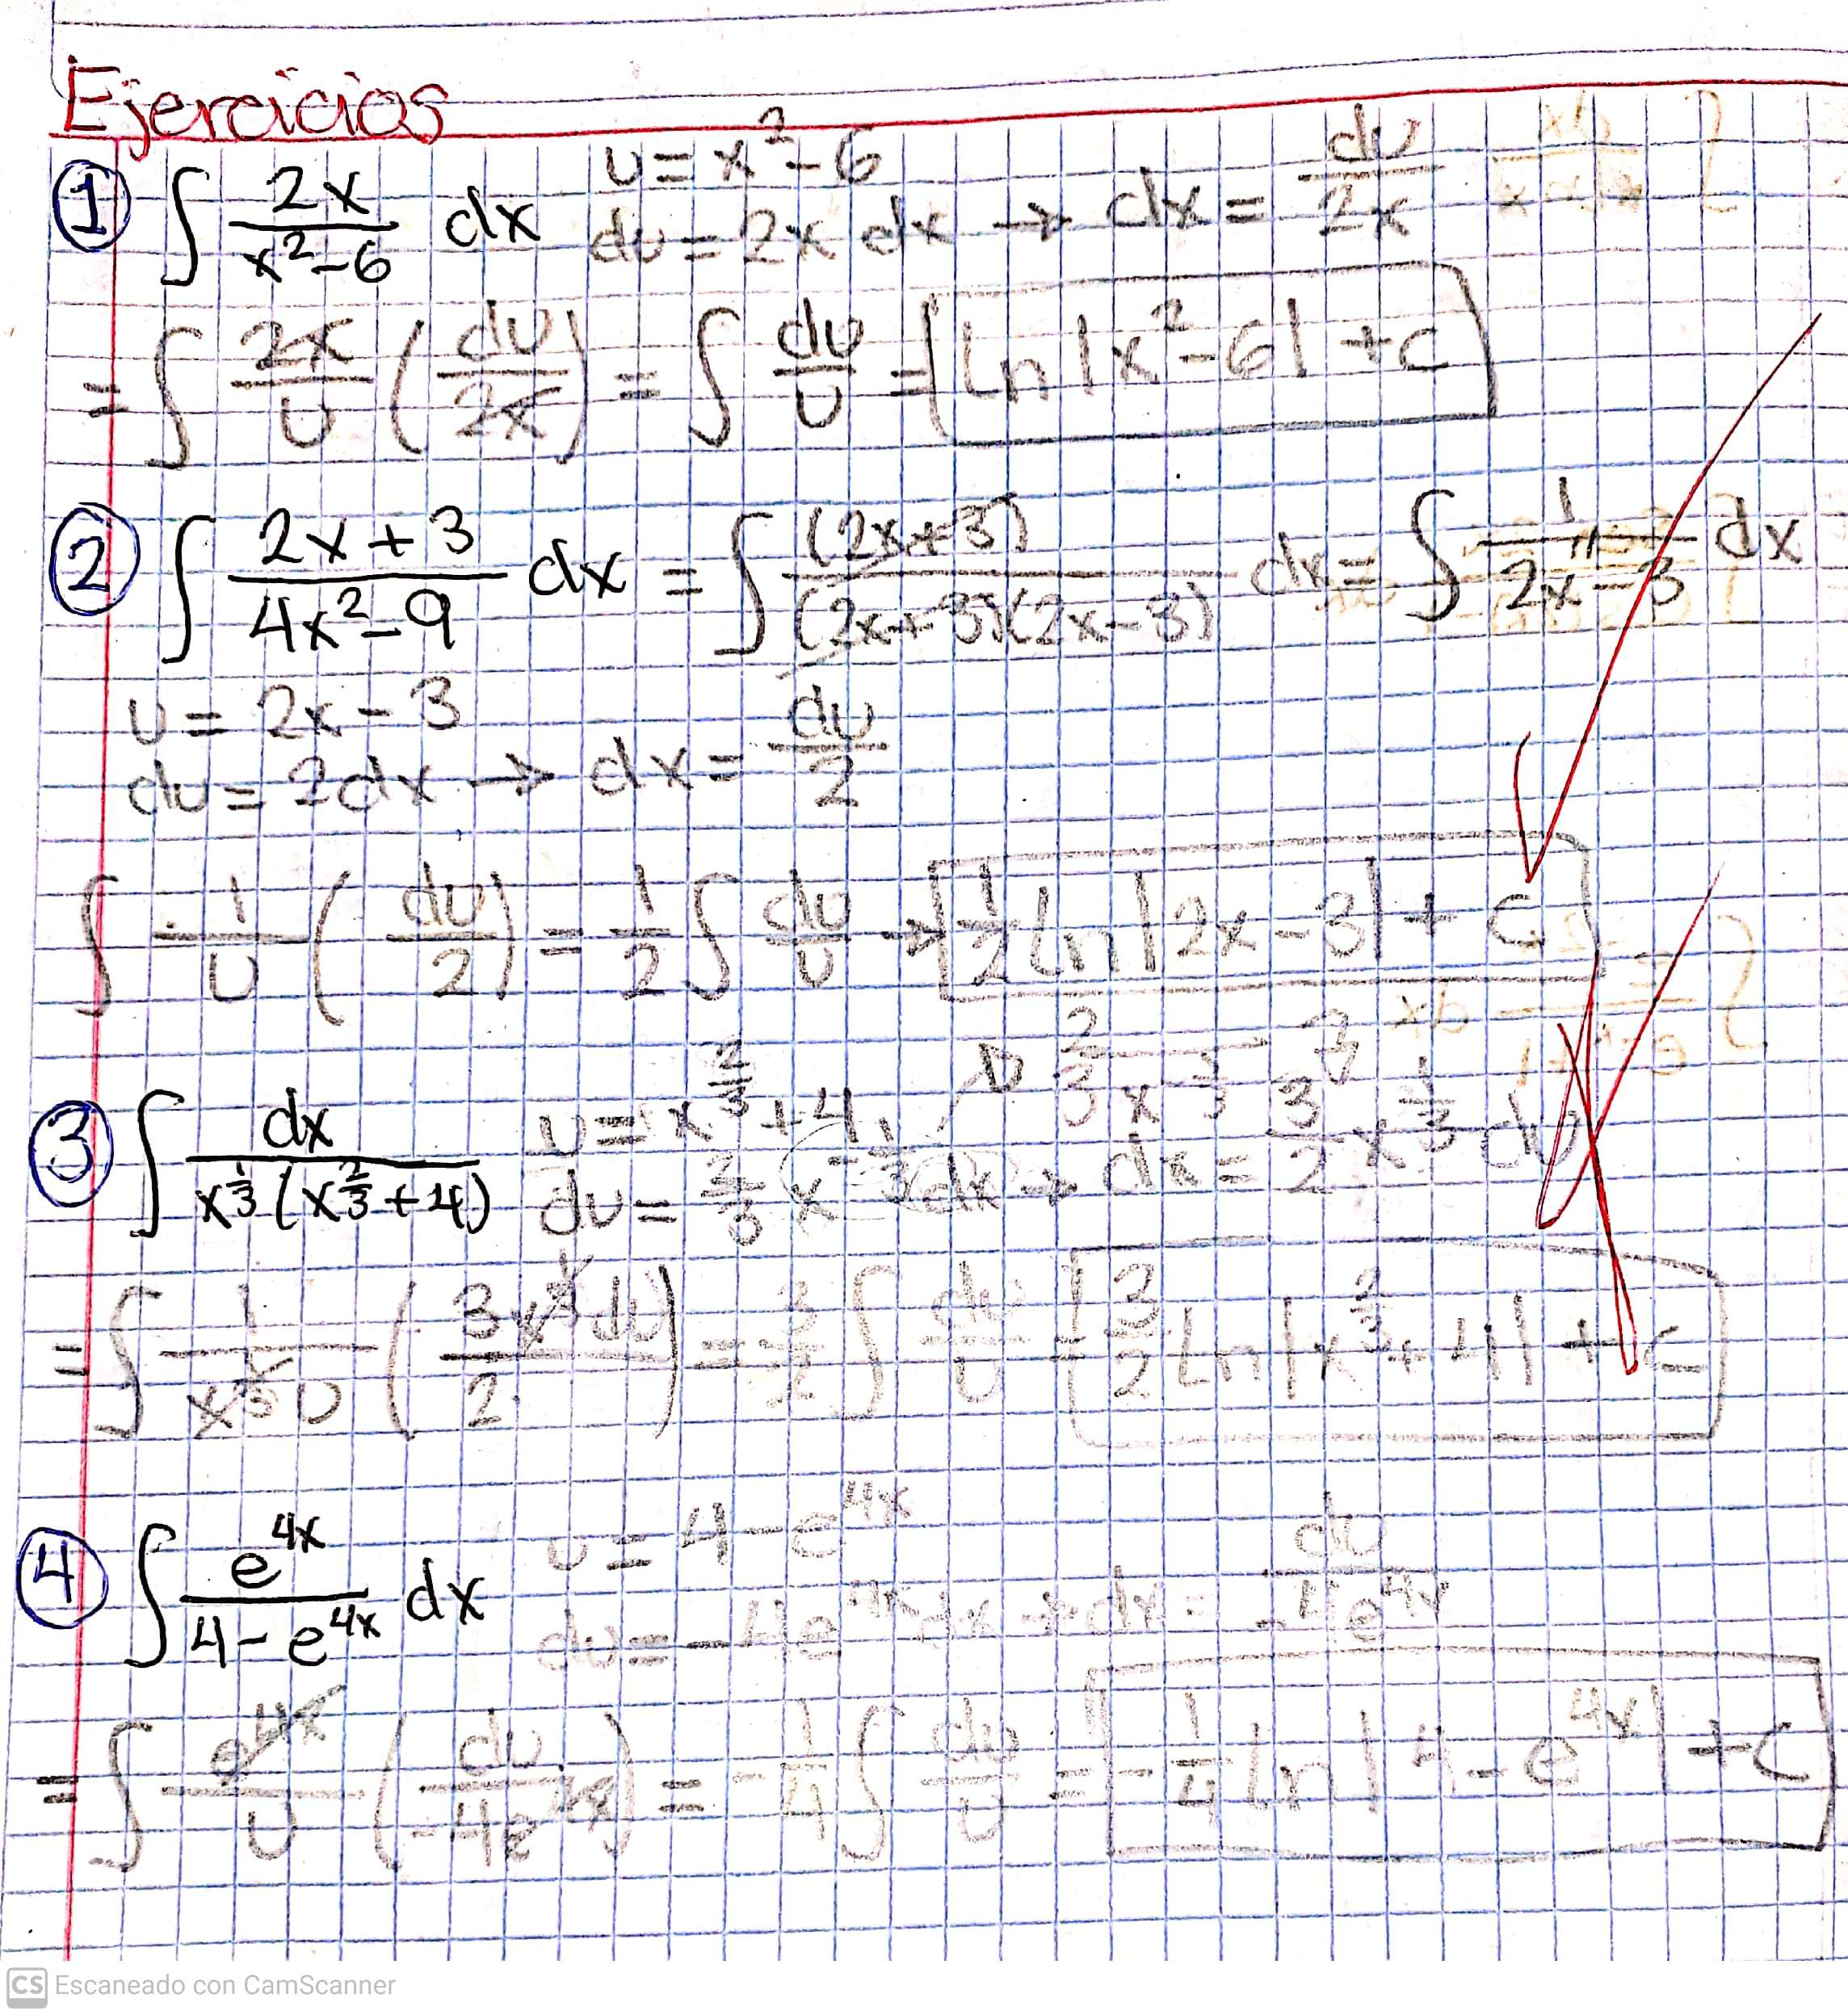 Ejercicios
① ∫ 2x/(x²-6) dx u = x²-6
du = 2x dx → dx = du/2x
= ∫ 2x/u (du/2x) = ∫ du/u = ln|x²-6| + c
② ∫ (2x+3)/(4x²-9) dx = ∫ (2x+3)/((2x+3)(2x-3)) dx = ∫ 1/(2x-3) dx
u = 2x-3
du = 2dx → dx = du/2
∫ 1/u (du/2) = 1/2 ∫ du/u → 1/2 ln|2x-3| + c
③ ∫ dx/(x^(1/3)(x^(2/3)+4)) u = x^(2/3)+4
du = 2/3 x^(-1/3) dx → dx = 3/2 x^(1/3) du
= ∫ 1/(x^(1/3) u) (3x^(1/3) du/2) = 3/2 ∫ du/u = 3/2 Ln|x^(2/3)+4| + c
④ ∫ e^(4x)/(4-e^(4x)) dx u = 4-e^(4x)
du = -4e^(4x) dx → dx = du/-4e^(4x)
= ∫ e^(4x)/u (du/-4e^(4x)) = -1/4 ∫ du/u = -1/4 Ln|4-e^(4x)| + c
CS Escaneado con CamScanner